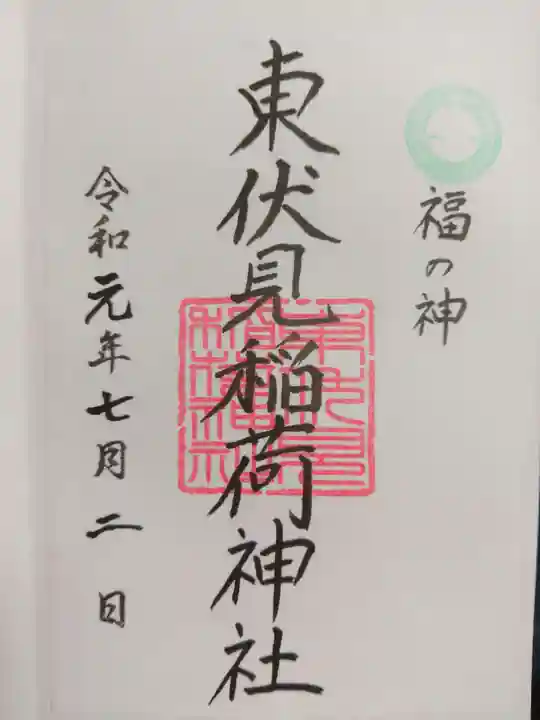 福の神
東伏見稲荷神社
令和元年七月二日